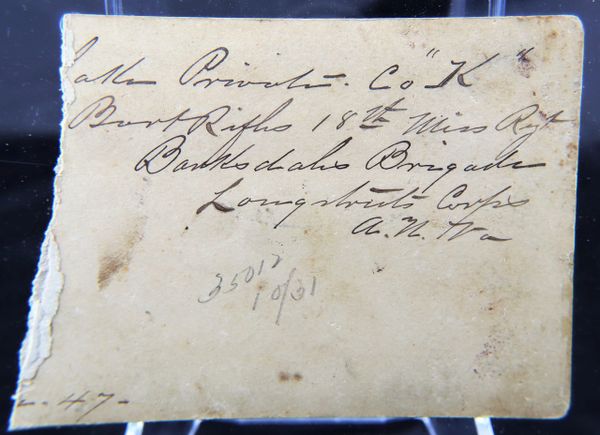 Private. Co "K"
Burt Rifles 18th Miss Rgt
Barksdales Brigade
Longstreets Corps
A. N. Va
35012
10/31
- 47 -